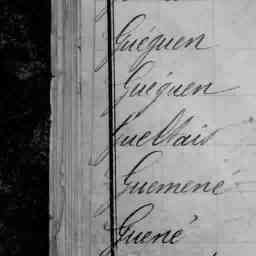 Guéguen
Guéguen
Guellais
Guemené
Guené